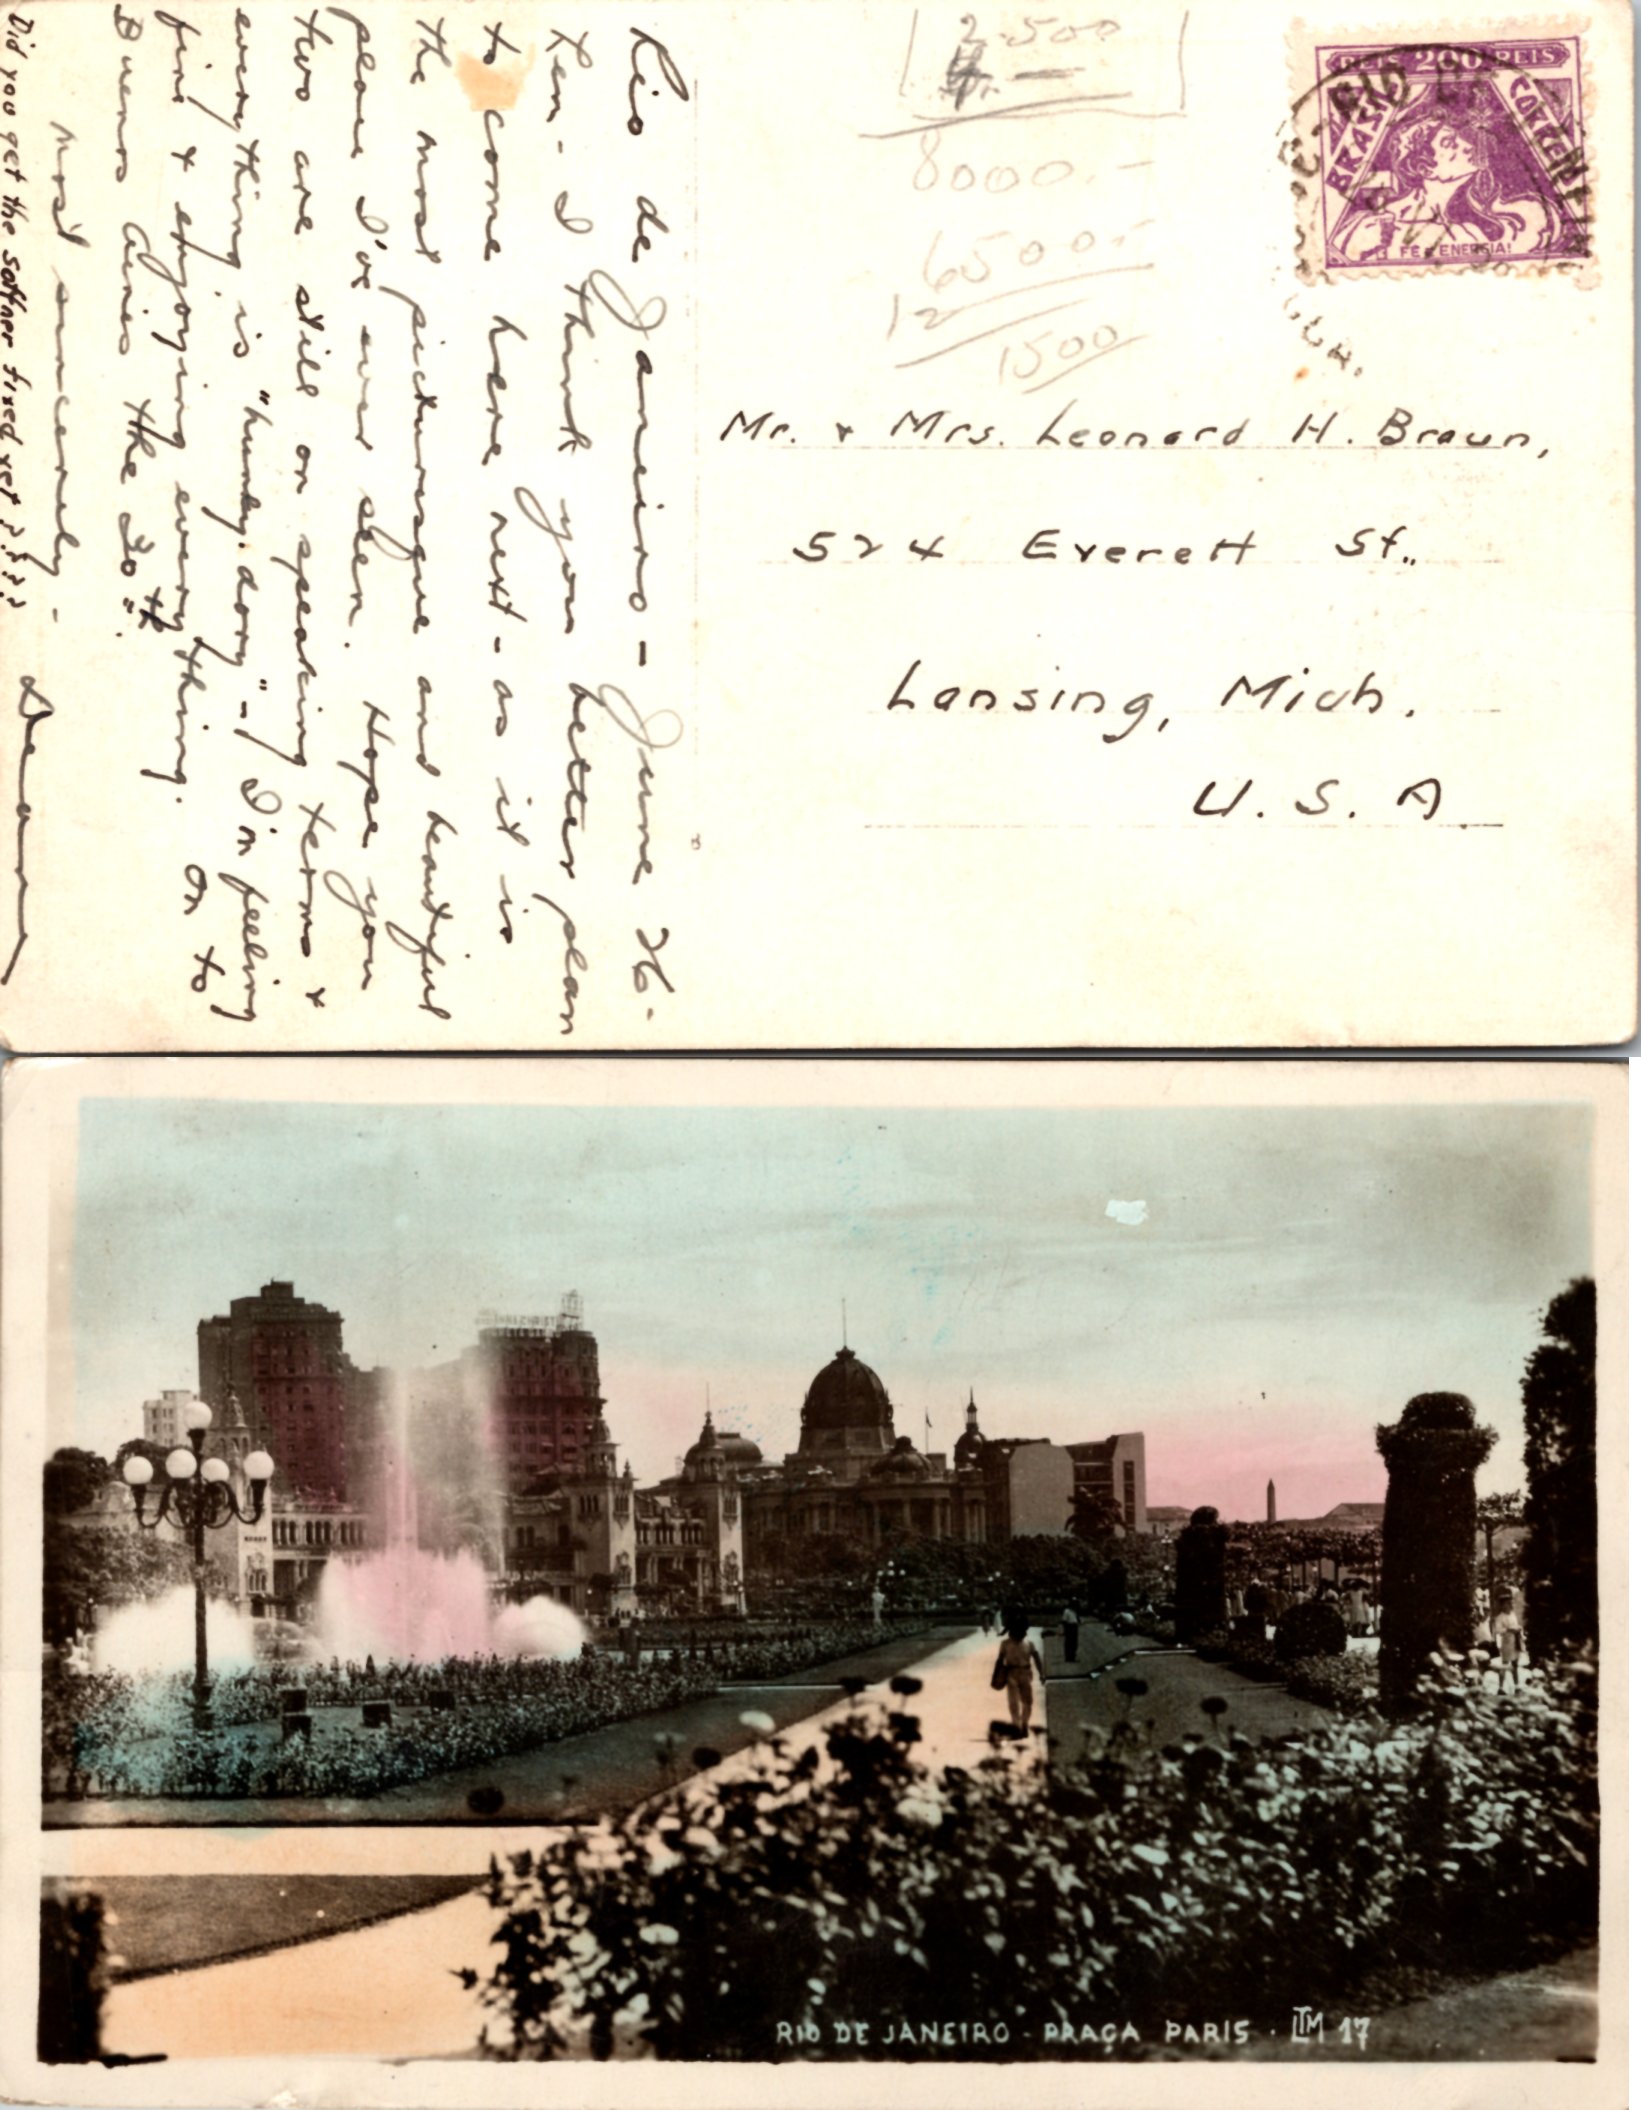 Rio de Janeiro - June 26 -
Len - I think you better plan
to come here next - as it is
the most picturesque and beautiful
place I've ever seen. Hope you
two are still on speaking terms &
everything is "hunky-dory" - I'm feeling
fine & enjoying everything. On to
Buenos Aires the 30th.
Most sincerely -
Deane
Did you get the softner fixed yet ????
2.500
8000.-
6500.-
12
1500
REIS 200 REIS
BRASIL CORREIO
FÉ E ENERGIA!
RIO DE
Mr. & Mrs. Leonard H. Braun,
524 Everett St.,
Lansing, Mich.
U. S. A.
RIO DE JANEIRO - PRAÇA PARIS · LTM 17